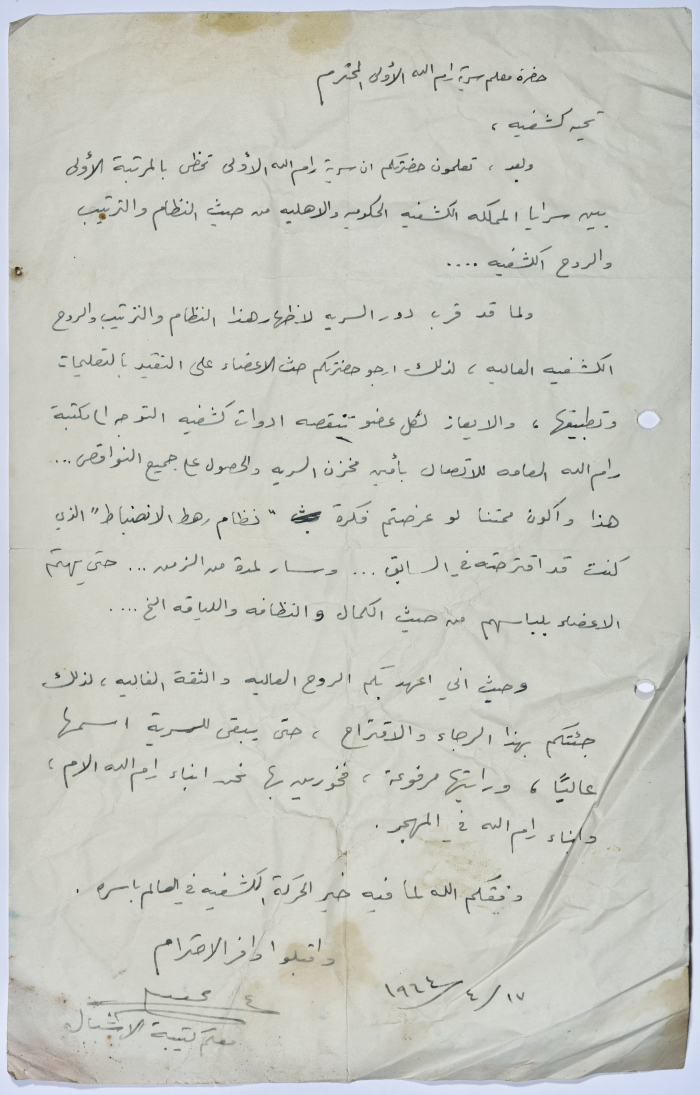 حضرة معلم سرية رام الله الأولى المحترم
تحيه كشفيه ،
وبعد ، تعلمون حضرتكم ان سرية رام الله الأولى تحظى بالمرتبة الأولى
بين سرايا المملكه الكشفيه الحكوميه والاهليه من حيث النظام والترتيب
والروح الكشفيه ....
ولما قد قرب دور السريه لاظهار هذا النظام والترتيب والروح
الكشفيه العاليه ، لذلك ارجو حضرتكم حث الاعضاء على التقيد بالتعليمات
وتطبيقها ، والايعاز لكل عضو تنقصه ادوات كشفيه التوجه الى مكتبة
رام الله العامه للاتصال بأمين مخزن السريه والحصول على جميع النواقص ...
هذا واكون ممتنا لو عرضتم فكرة " نظام رهط الانضباط " الذي
كنت قد اقترحته في السابق ... وسار لمدة من الزمن ... حتى يهتم
الاعضاء بلباسهم من حيث الكمال والنظافه واللياقه الخ ....
وحيث اني اعهد بكم الروح العاليه والثقة الغاليه ، لذلك
جئتكم بهذا الرجاء والاقتراح ، حتى يبقى للسرية اسمها
عاليًا ، ورايتها مرفوعة ، فخورين بها نحن ابناء رام الله الام ،
وابناء رام الله في المهجر .
وفيقكم الله لما فيه خير الحركة الكشفيه في العالم باسره .
واقبلوا وافر الاحترام
١٧/٤/١٩٦٤
معلم كتيبة الاشبال